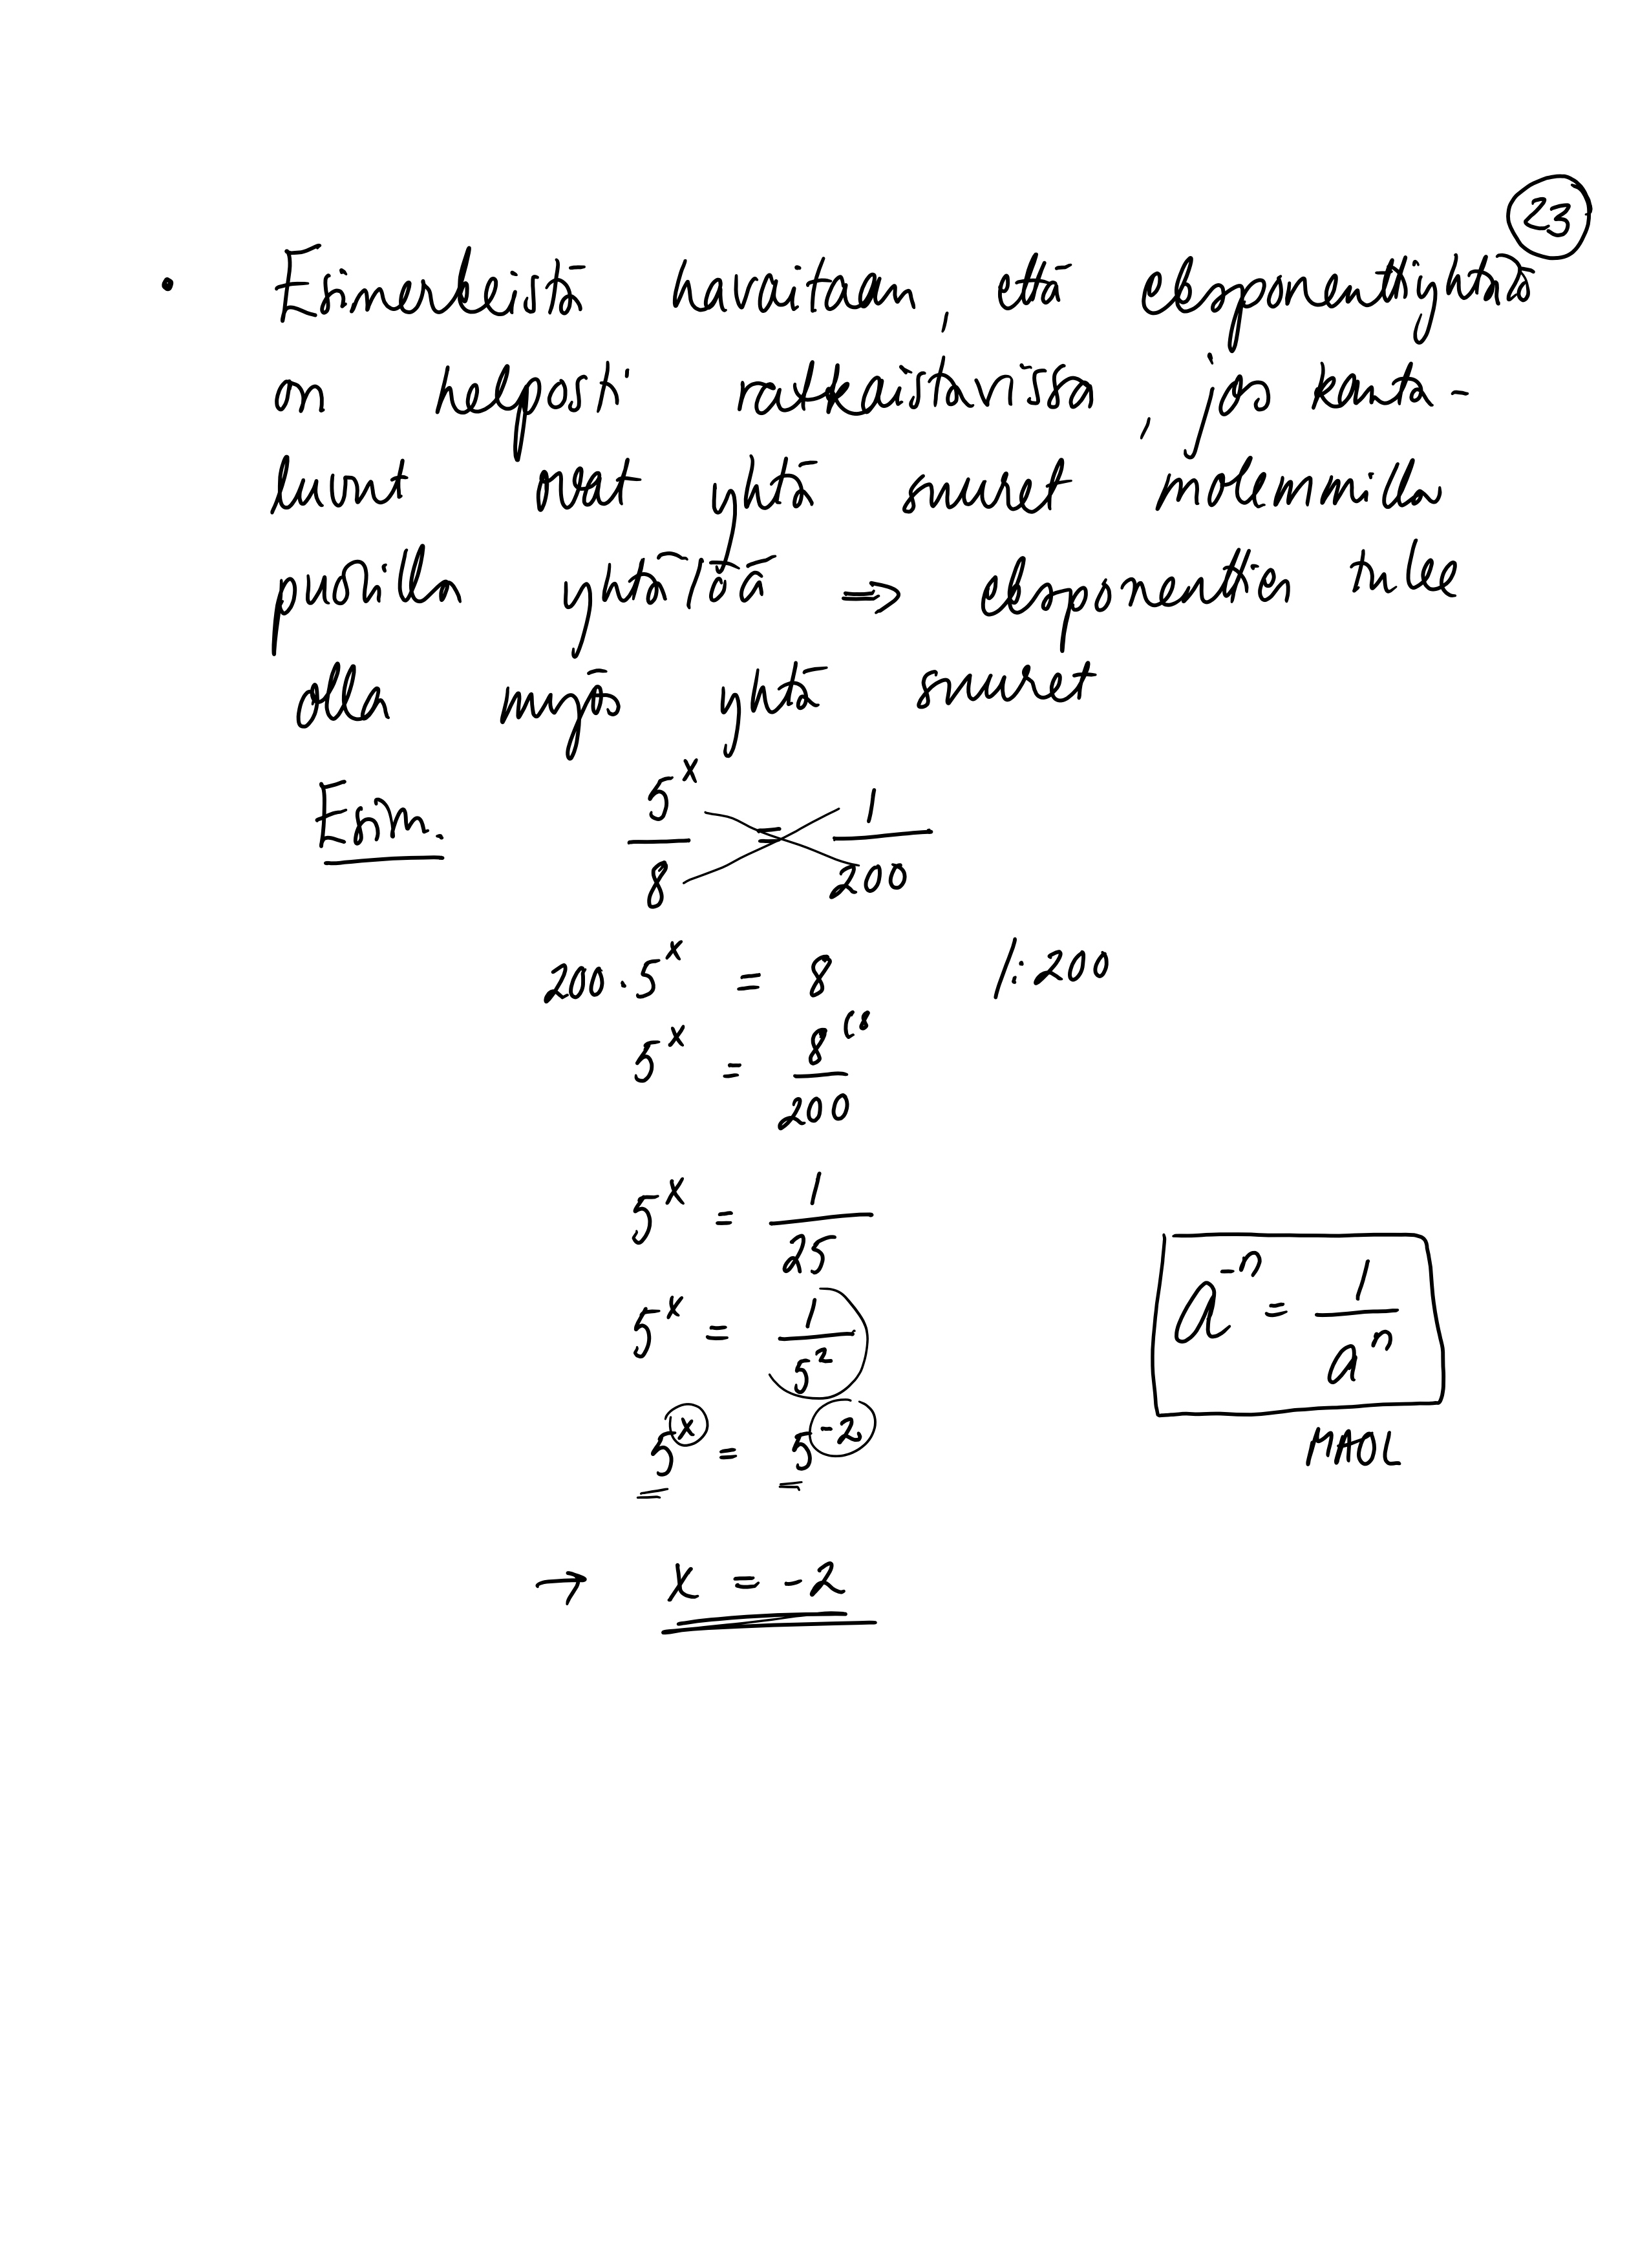 23
• Esimerkeistä havaitaan, että eksponenttiyhtälö
on helposti ratkaistavissa, jos kanta-
luvut ovat yhtä suuret molemmilla
puolilla yhtälöä ⇒ eksponenttien tulee
olla myös yhtä suuret
Esim. 5^x/8 = 1/200
200·5^x = 8 |:200
5^x = 8^(8/200
5^x = 1/25
5^x = 1/5^2
a^-n = 1/a^n
5^x = 5^-2
MAOL
→ x = -2